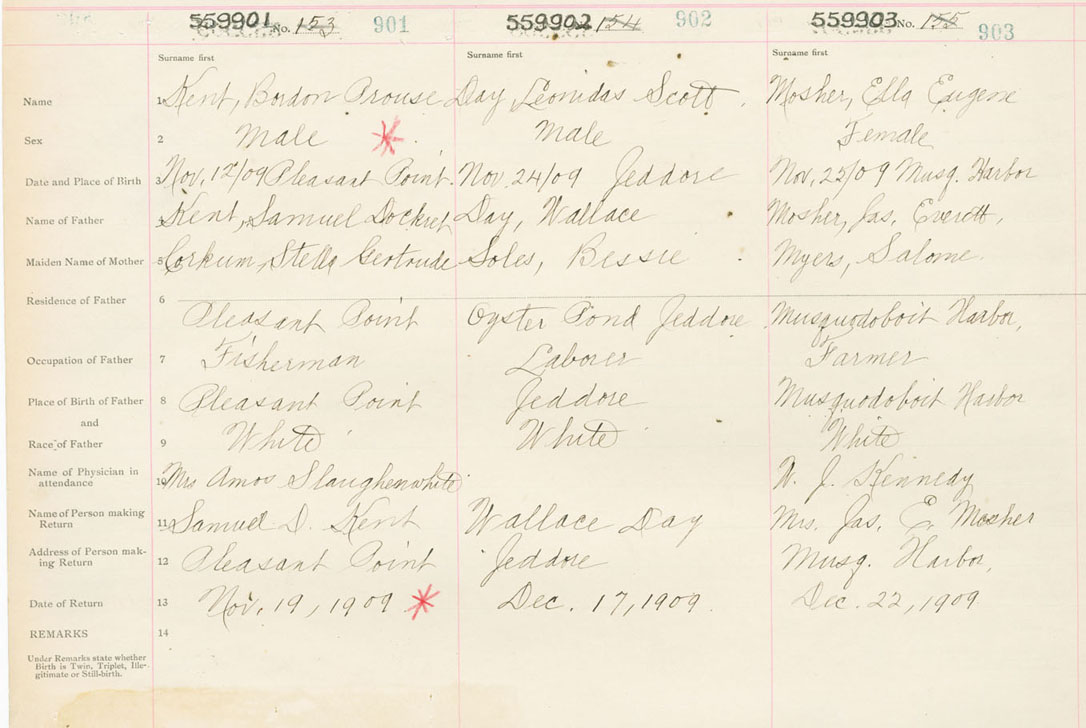 559901 No. 153 901 559902 154 902 559903 No. 155 903
Surname first Surname first Surname first
Name 1 Kent, Bordon Prouse Day, Leonidas Scott Mosher, Ella Eugene
Sex 2 Male Male Female
Date and Place of Birth 3 Nov. 12/09 Pleasant Point. Nov 24/09 Jeddore Nov, 25/09 Musq. Harbor
Name of Father Kent, Samuel Dockret Day, Wallace Mosher, Jas. Everett,
Maiden Name of Mother 5 Corkum, Stella Gertrude Soles, Bessie Myers, Salome
Residence of Father 6 Pleasant Point Oyster Pond Jeddore Musquodoboit Harbor,
Occupation of Father 7 Fisherman Laborer Farmer
Place of Birth of Father 8 Pleasant Point Jeddore Musquodoboit Harbor
and
Race of Father 9 White White White
Name of Physician in
attendance 10 Mrs Amos Slaughenwhite W. J. Kennedy
Name of Person making
Return 11 Samuel D. Kent Wallace Day Mrs. Jas. E. Mosher
Address of Person mak-
ing Return 12 Pleasant Point Jeddore Musq. Harbor,
Date of Return 13 Nov. 19, 1909 Dec. 17, 1909. Dec. 22, 1909.
REMARKS 14
Under Remarks state whether
Birth is Twin, Triplet, Ille-
gitimate or Still-birth.